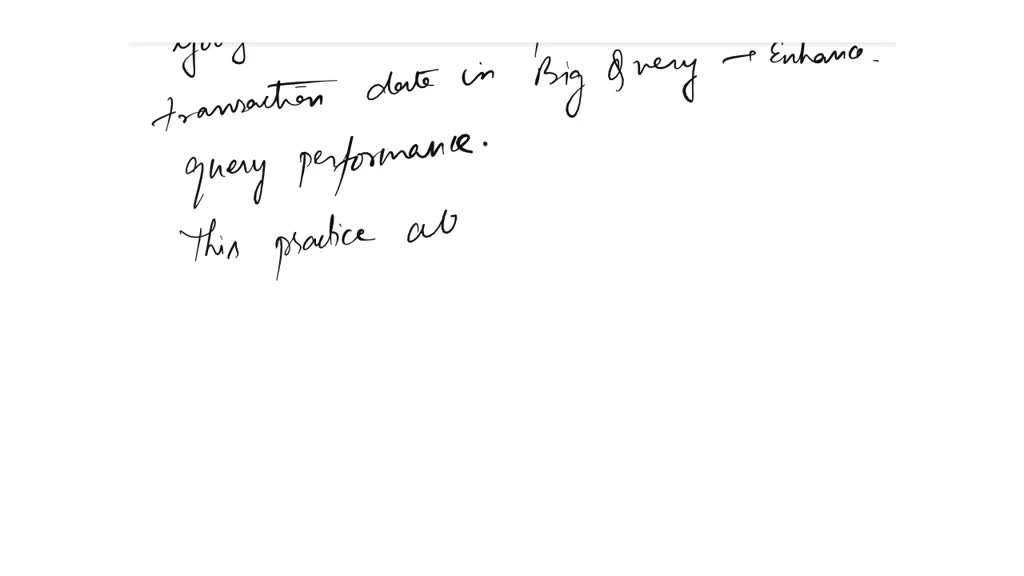 transaction date in Big Query → Enhance.
query performance.
This practice